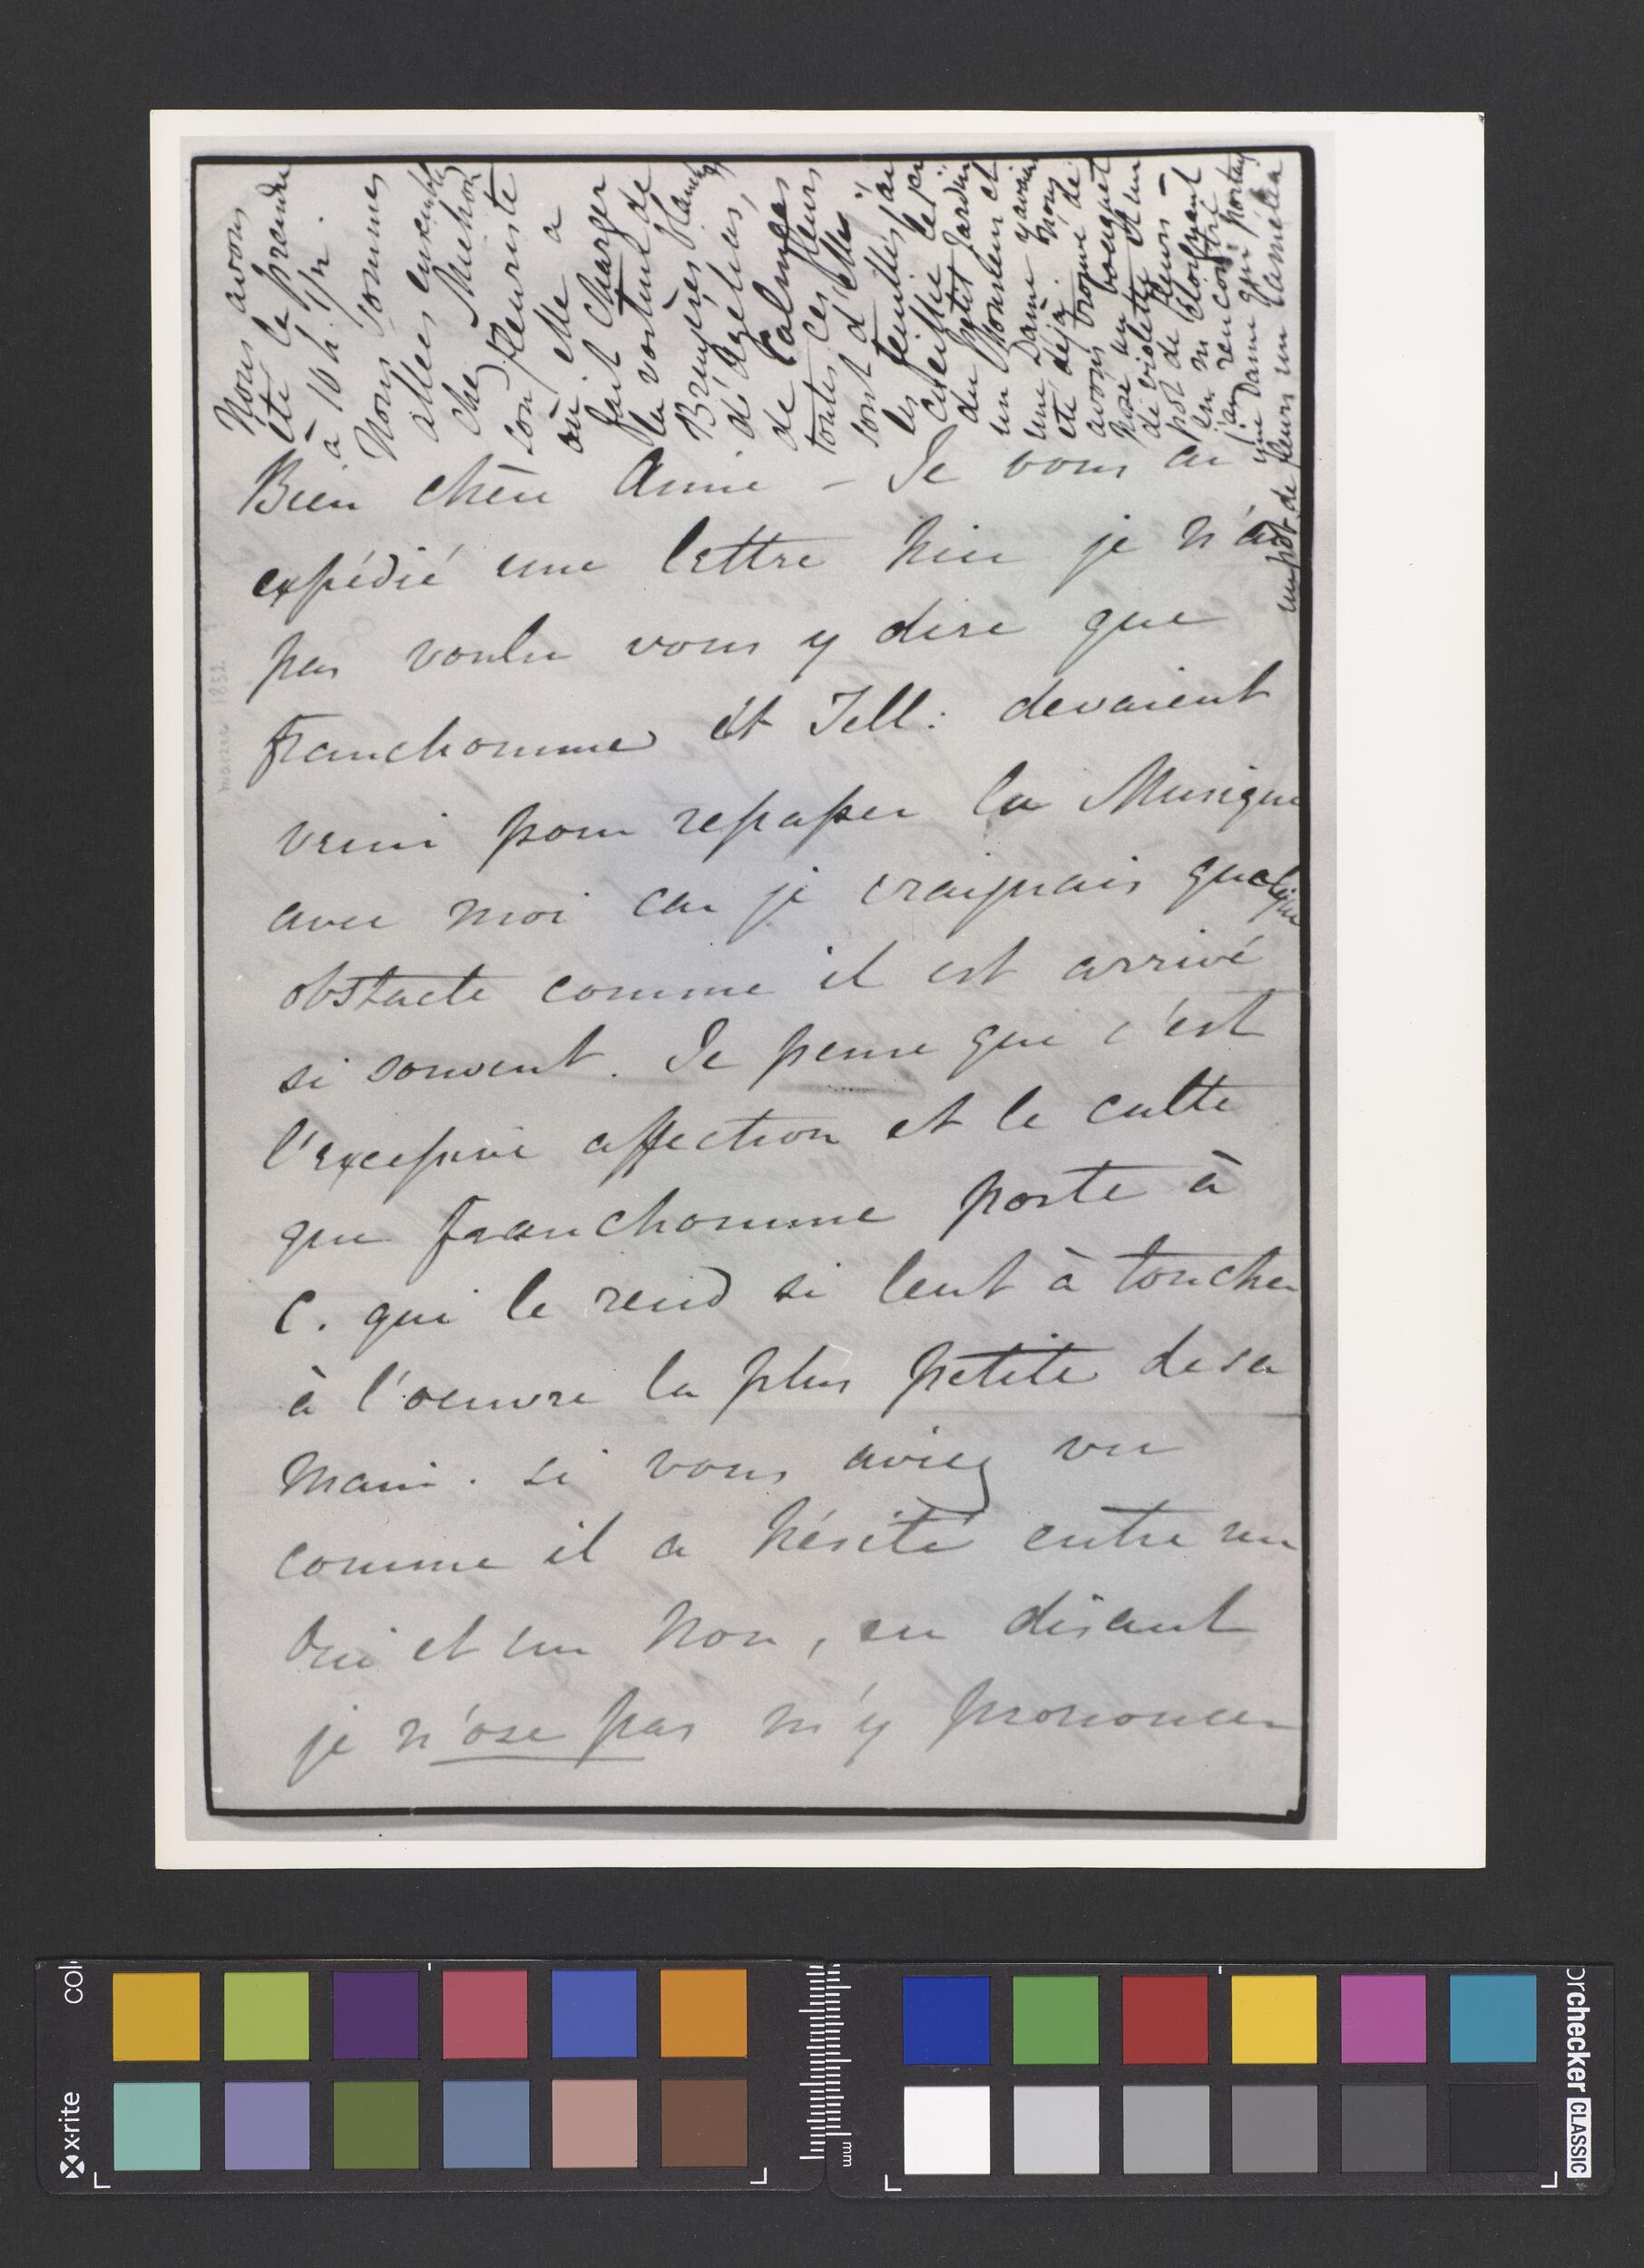 Nous avons
été la prendre
à 10 h. 1/2.
Nous sommes
allées ensemble
che
son fleuriste
où elle a
fait charger
la voiture de
Bruyères blanches
d'Azelias,
de Calmias
toutes ces fleurs
sont d'elle;
les feuilles j'ai
cueillie
du petit Jardin
un Monsieur et
une Dame y avaient
été déjà. Nous
avons trouvé de
posé un bouquet
de violette et un
pot de fleurs –
en m'éloignant
j'ai rencontré
une Dame qui portait
un pot de fleurs un Camélia
Bien chère Amie – Je vous ai
expédié une lettre hier je n'ai
pas voulu vous y dire que
Franchomme et Tell: devaient
venir pour repasser la Musique
avec moi car je craignais quelque
obstacle comme il est arrivé
si souvent. Je pense que c'est
l'excessive affection et le culte
que Franchomme porte à
C. qui le rend si lent à toucher
à l'oeuvre la plus petite de sa
main. si vous aviez vu
comme il a hésité entre un
Oui et un Non, en disant
je n'ose pas m'y prononcer
marzec 1852
x-rite
colorchecker CLASSIC
mm